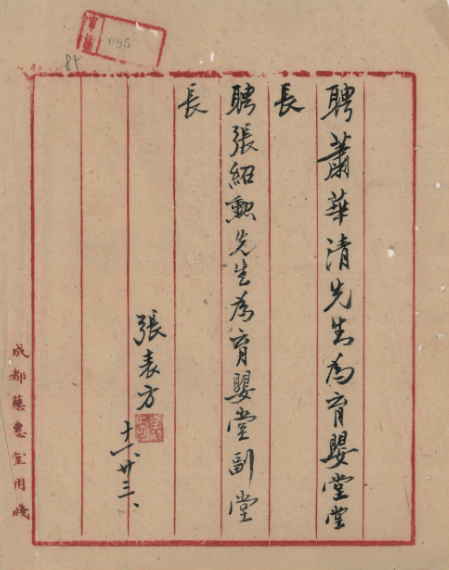 聘蕭華清先生為育嬰堂堂
長
聘張紹勲先生為育嬰堂副堂
長
張表方
十一、廿三、
成都慈惠堂用牋
085
85